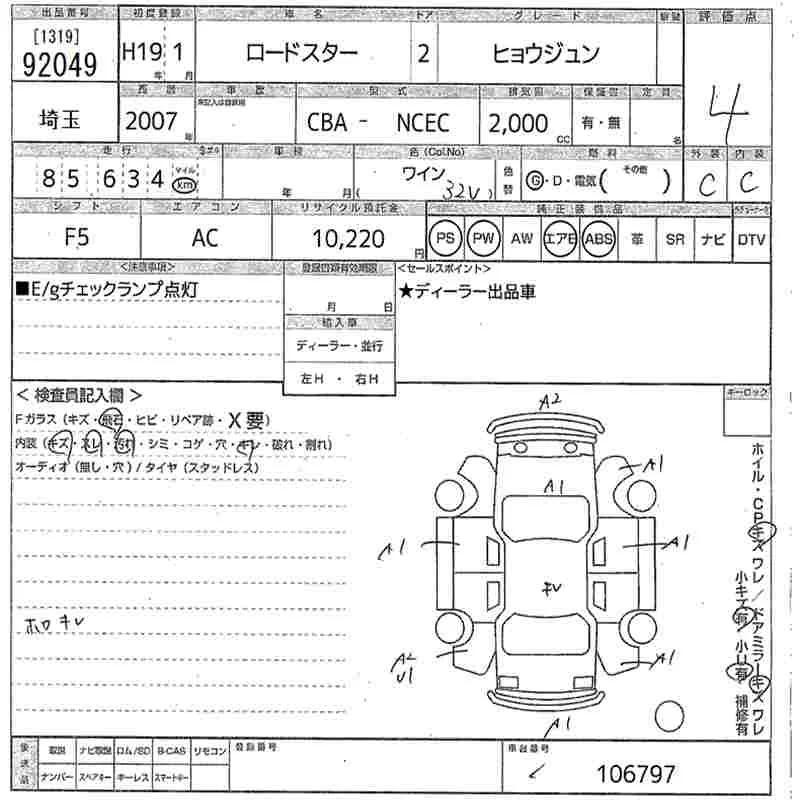 出品番号 初度登録 車名 ドア グレード 評価点
[1319]
92049 H19 1 年 月 ロードスター 2 ヒョウジュン 4
西暦 車歴 型式 排気量 保証書 定員
埼玉 2007 年 CBA - NCEC 2,000 CC 有・無 名
走行 車検 色(Col.No) 燃料 外装 内装
85,634 マイル km 年 月 ワイン ( 32V ) 色替 G・D・電気( その他 ) C C
シフト エアコン リサイクル預託金 純正装備品
F5 AC 10,220 円 PS PW AW エアB ABS 革 SR ナビ DTV
<注意事項> 登録書類有効期限 <セールスポイント>
■E/gチェックランプ点灯 月 日 ★ディーラー出品車
輸入車
ディーラー・並行
左H ・ 右H
<検査員記入欄> キーロック
Fガラス (キズ・飛石・ヒビ・リペア跡・X要)
内装 (キズ・スレ・汚れ・シミ・コゲ・穴・キレ・破れ・割れ)
オーディオ (無し・穴) / タイヤ (スタッドレス)
A2
A1
A1
A1
A1
キレ
ホロ キレ
A2
U1
A1
A1
ホイル・CPキズワレ/ドアミラーキズワレ
小キズ有/小U有/補修有
後送品 取説 ナビ取説 ロム/SD B-CAS リモコン 登録番号 車台番号
ナンバー スペアキー キーレス スマートキー 106797